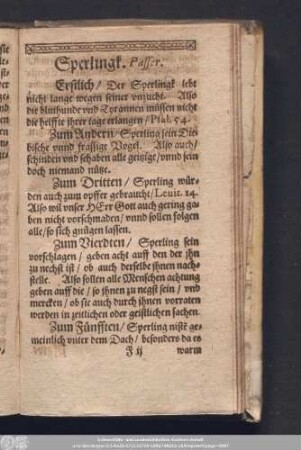 Sperlingk. Passer.
Erstlich / Der Sperlingk lebt
nicht lange wegen seiner vnzucht. Also
die bluthunde vnd Tyrannen müssen nicht
die helffte ihrer tage erlangen / Psal. 54.
Zum Andern / Sperling sein Die-
bische vnnd frässige Vogel. Also auch /
schinden vnd schaben alle geitzige / vnnd sein
doch niemand nütze.
Zum Dritten / Sperling wür-
den auch zum opffer gebraucht / Leuit. 14.
Also wil vnser HErr Gott auch gering ga-
ben nicht vorschmaden / vnnd sollen folgen
alle / so sich gnügen lassen.
Zum Vierdten / Sperling sein
vorschlagen / geben acht auff den der ihn
zu nechst ist / ob auch derselbe ihnen nach-
stelle. Also sollen alle Menschen achtung
geben auff die / so ihnen zu negst sein / vnd
mercken / ob sie auch durch ihnen vorraten
werden in zeitlichen oder geistlichen sachen.
Zum Fünfften / Sperling nistet ge-
meinlich vnter dem Dach / besonders da es
F ij warm